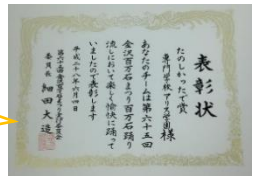 表彰状
たのしかったで賞
専門学校アリス学園様
あなたのチームは第六十五回
金沢百万石まつり百万石踊り
流しにおいて楽しく愉快に踊って
いましたので表彰します
平成二十八年六月四日
委員長 細田大造